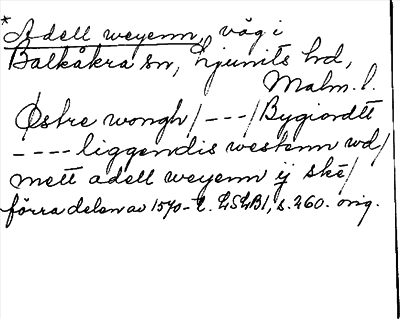 * Adell weyenn, väg i
Balkåkra sn, Ljunits hd,
Malm. l.
Østre wongh/---/Bygiordtt
---- liggendis westenn wd/
mett adell weyenn ij ske/
förra delen av 1570-t. LSLB1, s. 260. orig.